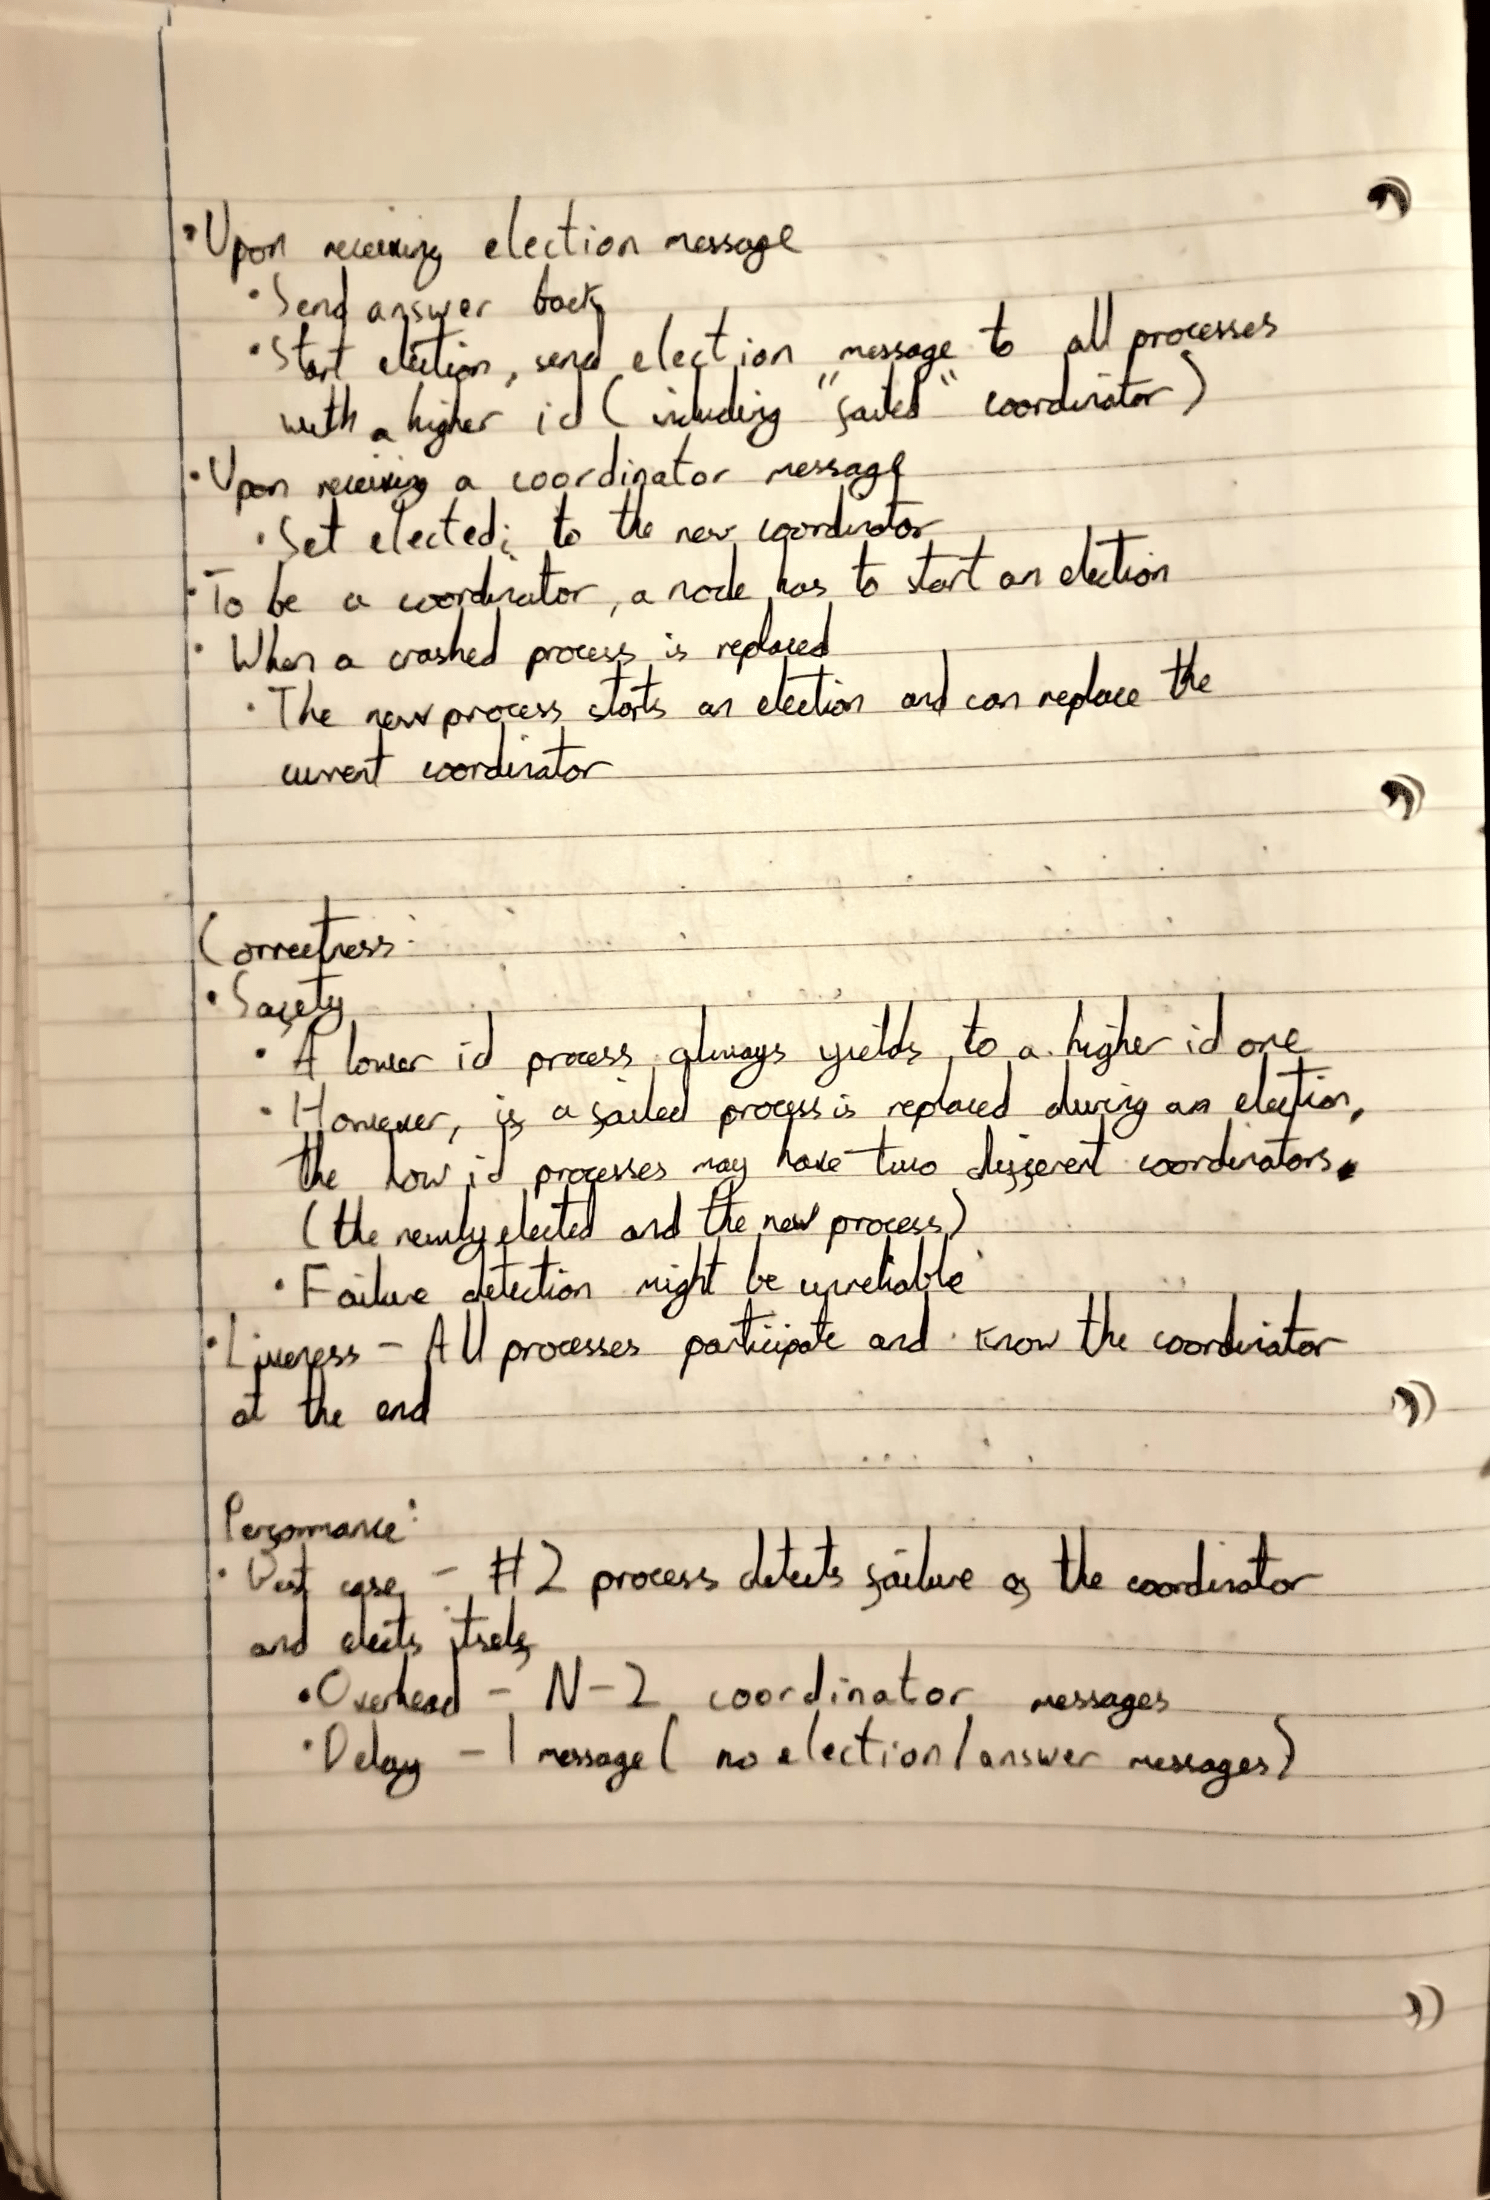 • Upon receiving election message
• Send answer back
• Start election, send election message to all processes
with a higher id (including "failed" coordinator)
• Upon receiving a coordinator message
• Set electedᵢ to the new coordinator
• To be a coordinator, a node has to start an election
• When a crashed process is replaced
• The new process starts an election and can replace the
current coordinator
Correctness:
• Safety
• A lower id process always yields to a higher id one
• However, if a failed process is replaced during an election,
the low id processes may have two different coordinators.
(the newly elected and the new process)
• Failure detection might be unreliable
• Liveness - All processes participate and know the coordinator
at the end
Performance:
• Best case - #2 process detects failure of the coordinator
and elects itself
• Overhead - N-2 coordinator messages
• Delay - 1 message (no election/answer messages)